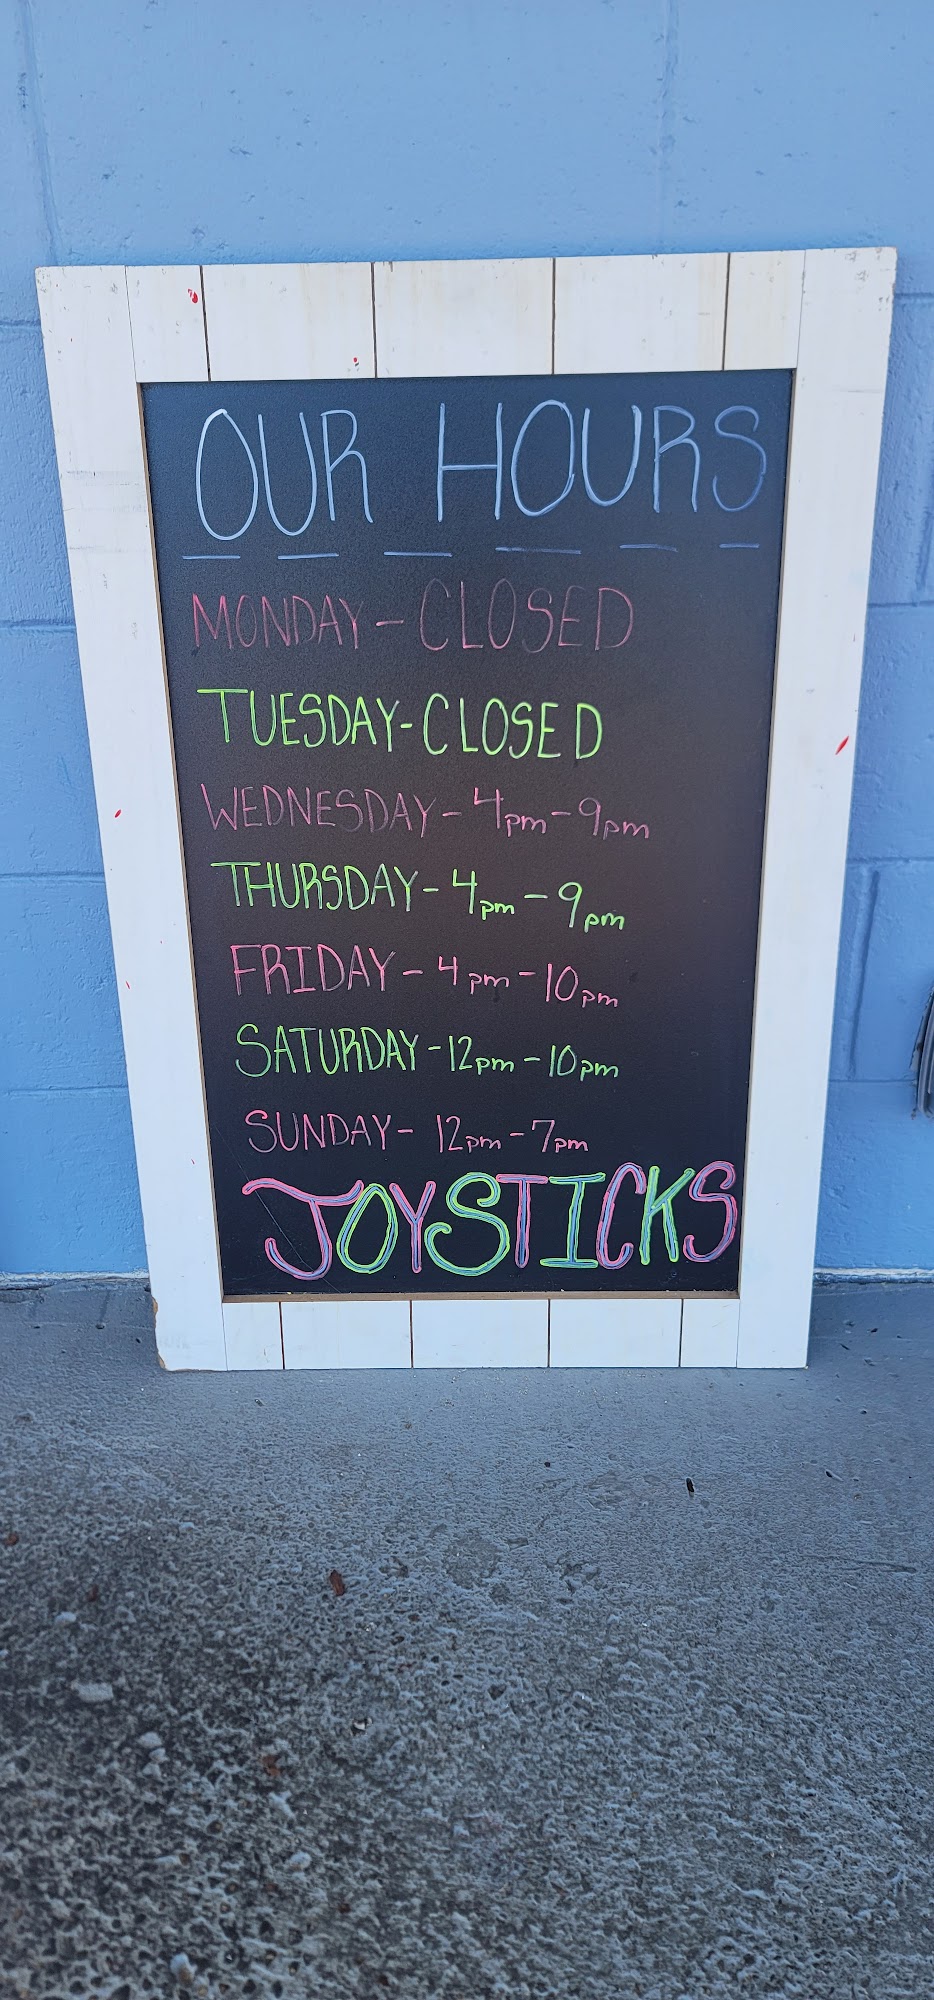 OUR HOURS
MONDAY - CLOSED
TUESDAY - CLOSED
WEDNESDAY - 4pm - 9pm
THURSDAY - 4pm - 9pm
FRIDAY - 4pm - 10pm
SATURDAY - 12pm - 10pm
SUNDAY - 12pm - 7pm
JOYSTICKS